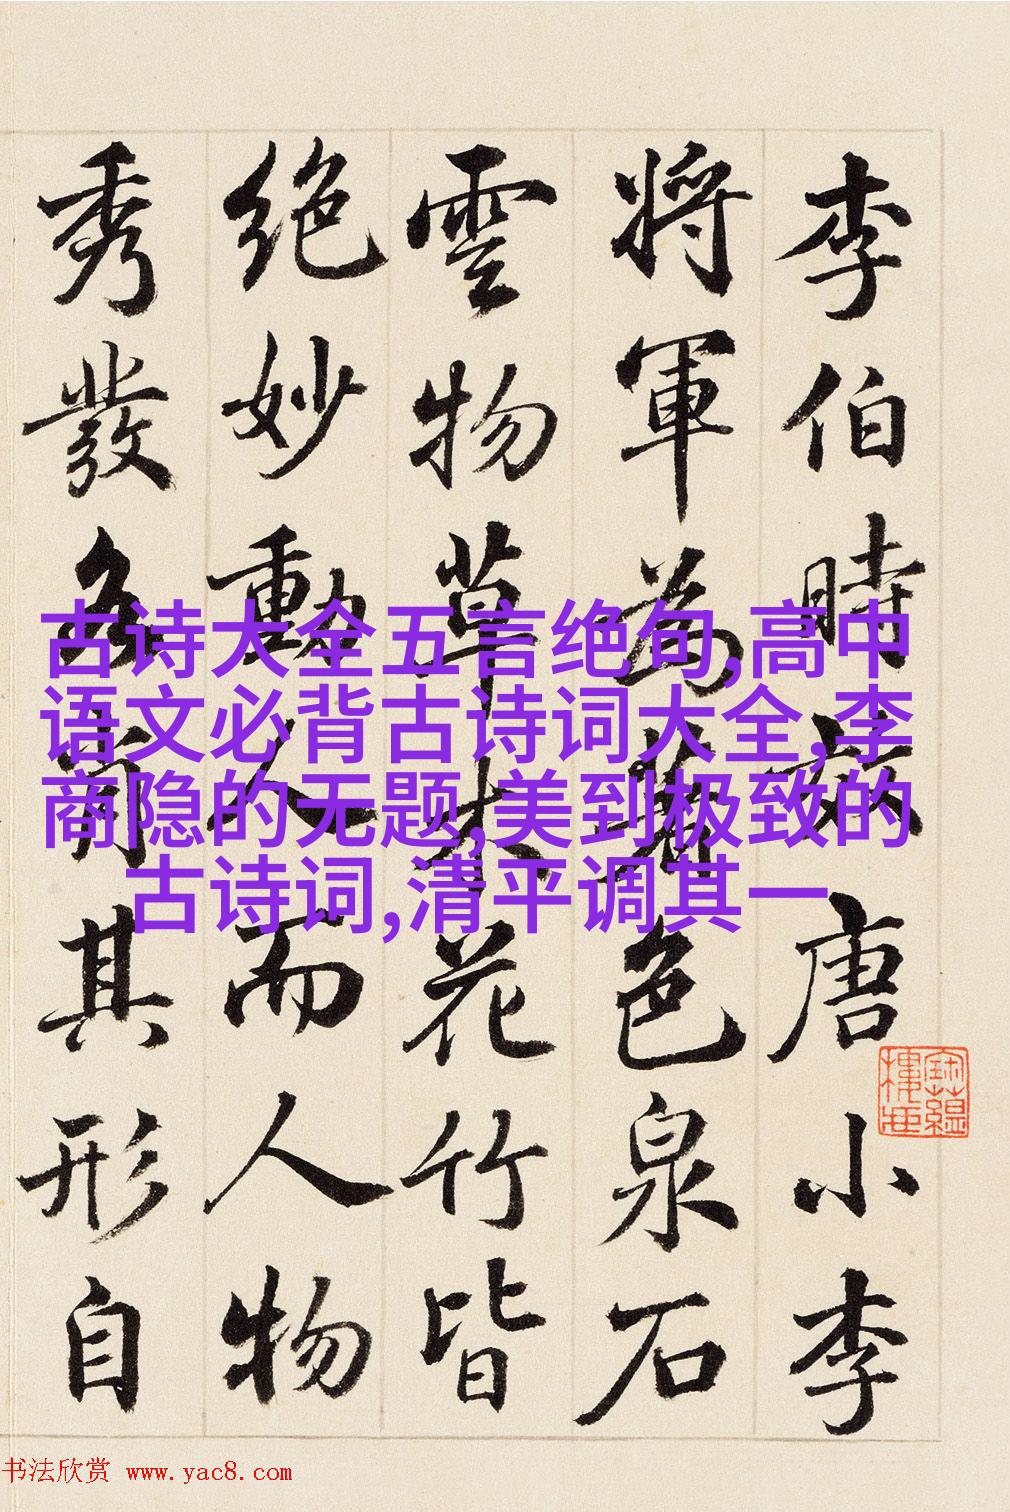 李伯時效唐小李
將軍為著色泉石
雲物草木花竹皆
絕妙動人而人物
秀發各肖其形自
古诗大全五言绝句,高中
语文必背古诗词大全,李
商隐的无题,美到极致的
古诗词,清平调其一
书法欣赏 www.yac8.com